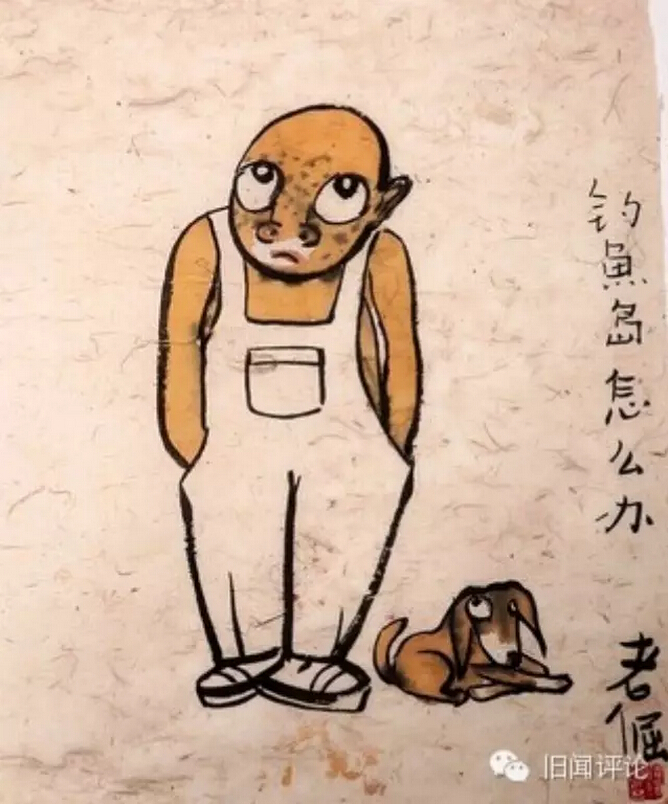 钓魚岛怎么办
老倔
旧闻评论